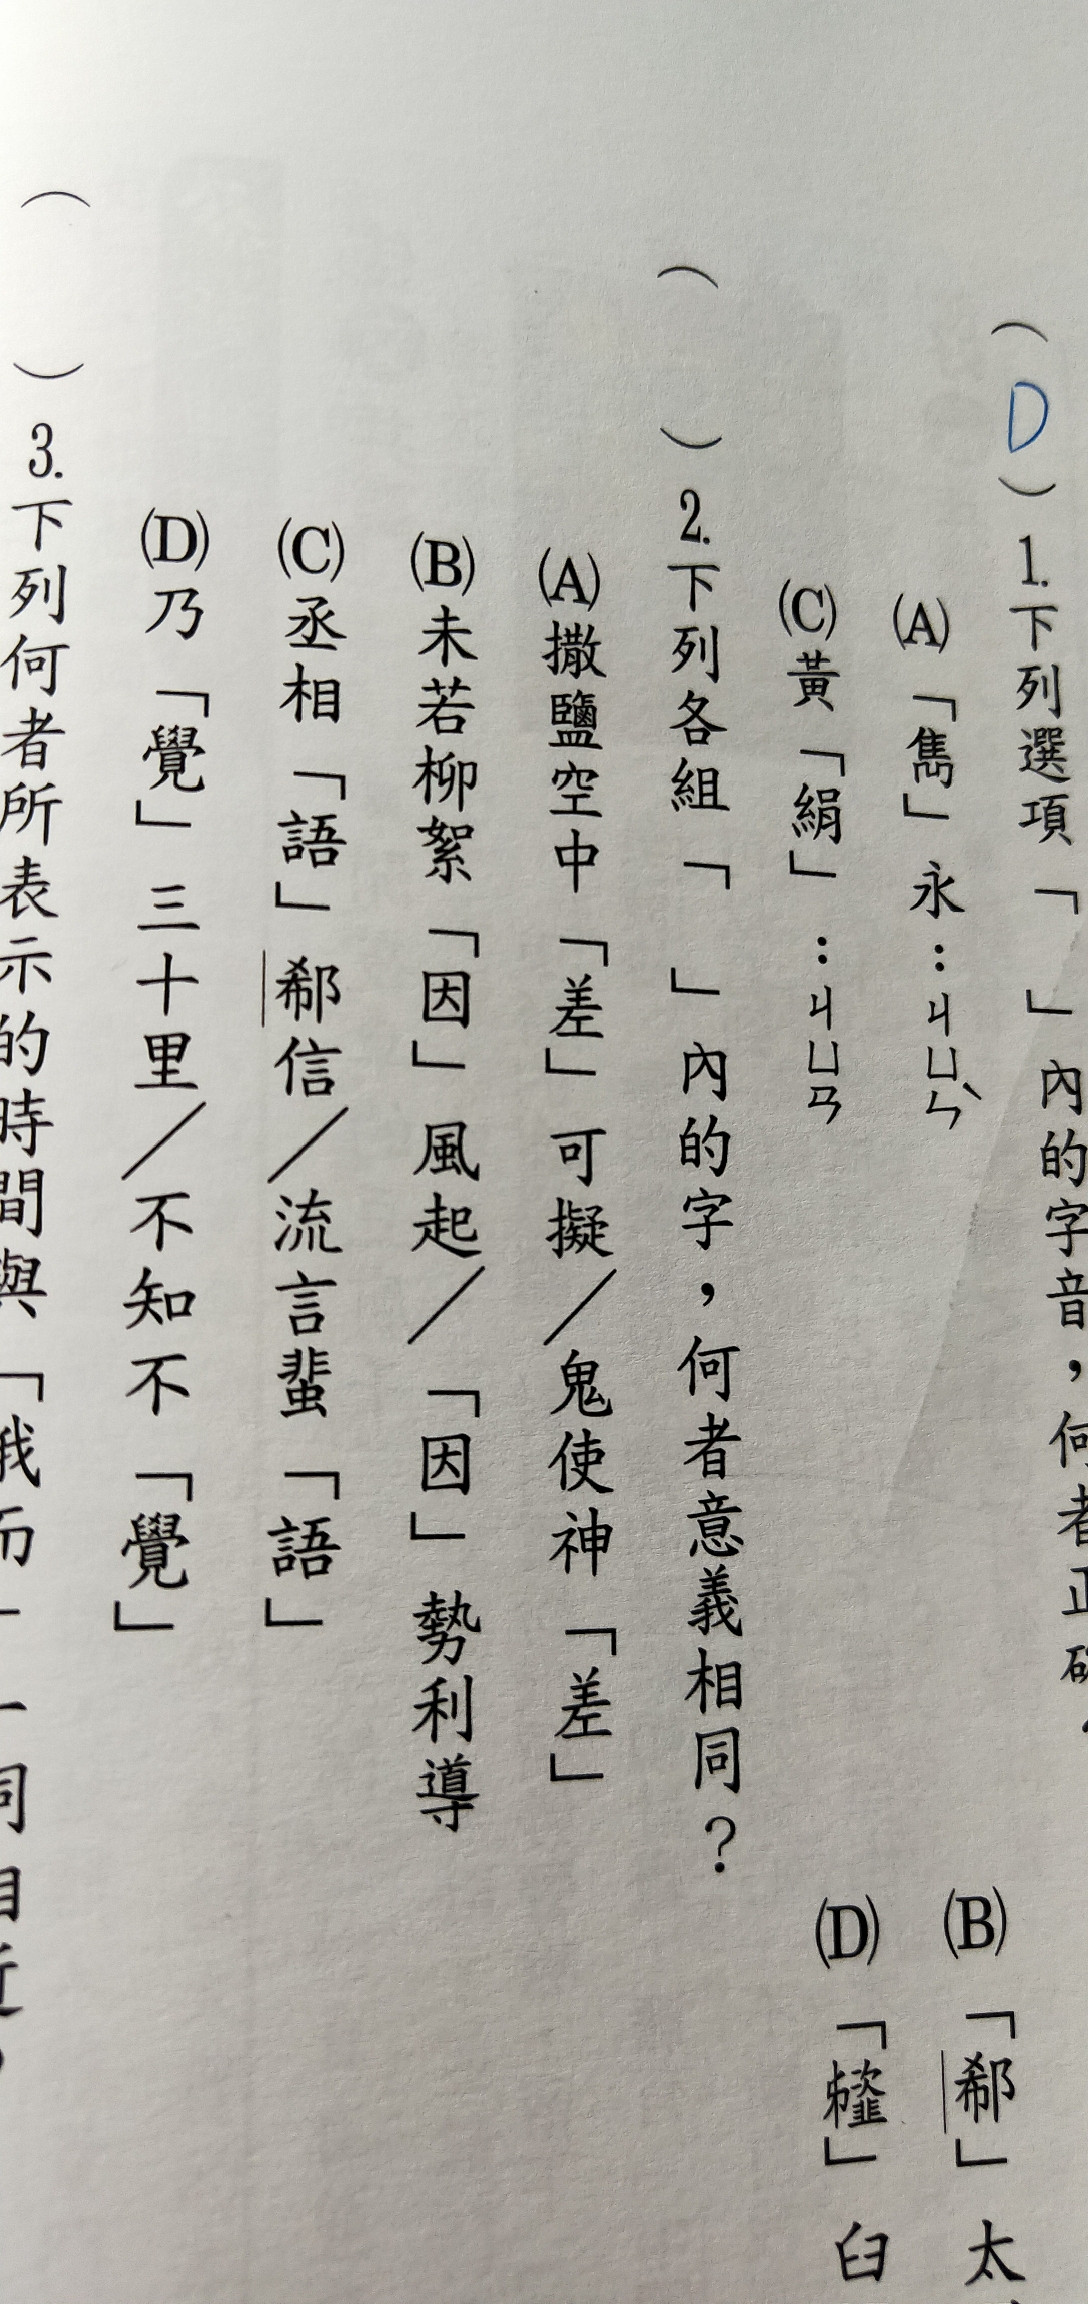 （D）1.下列選項「　」內的字音，何者正確
(A)「雋」永：ㄐㄩㄣˋ　(B)「郗」太
(C)黃「絹」：ㄐㄩㄢ　(D)「　」臼
（　）2.下列各組「　」內的字，何者意義相同？
(A)撒鹽空中「差」可擬／鬼使神「差」
(B)未若柳絮「因」風起／「因」勢利導
(C)丞相「語」郗信／流言蜚「語」
(D)乃「覺」三十里／不知不「覺」
（　）3.下列何者所表示的時間與「俄而」一詞相近？